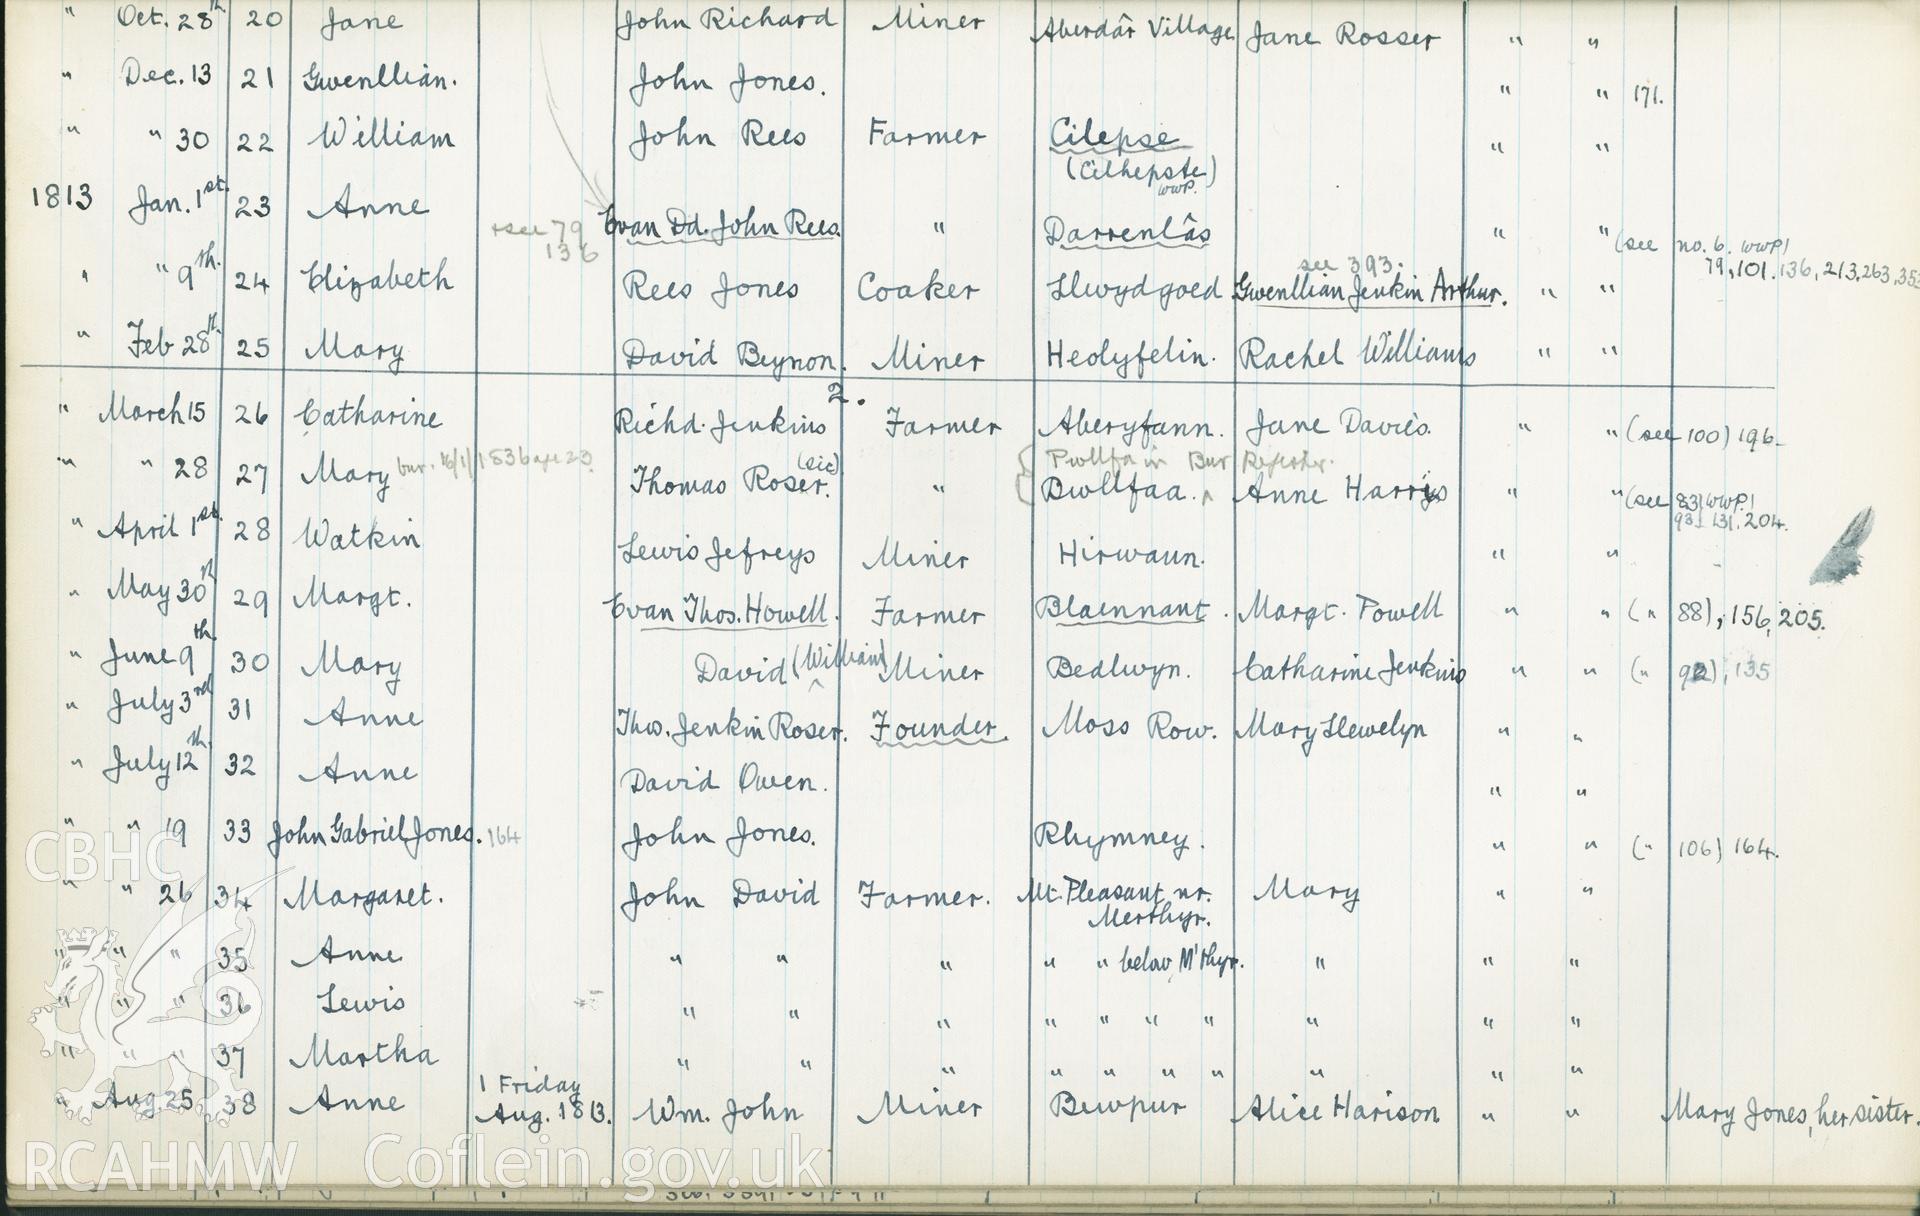 " Oct. 28th 20 Jane John Richard Miner Aberdâr Village Jane Rosser " "
" Dec. 13 21 Gwenllian. John Jones. " " 171.
" " 30 22 William John Rees Farmer Cilepse " "
(Cilhepste) WWP.
1813 Jan. 1st. 23 Anne see 79 Evan Dd. John Rees. " Darrenlâs " " (see no. 6. WWP)
136 79, 101. 136, 213, 263, 353
see 393.
" " 9th. 24 Elizabeth Rees Jones Coaker Llwydgoed Gwenllian Jenkin Arthur. " "
" Feb 28th. 25 Mary David Beynon. Miner Heolyfelin. Rachel Williams " "
2.
" March 15 26 Catharine Richd. Jenkins Farmer Aberyfann. Jane Davies. " " (see 100) 196.
Pwllfa in Bur Register.
" " 28 27 Mary bur. 16/1/1836 age 23. Thomas Roser. (sic) " Bwllfaa. Anne Harris " " (see 83) WWP.
93. 131. 204.
" April 1st. 28 Watkin Lewis Jefreys Miner Hirwaun. " "
" May 30th 29 Margt. Evan Thos. Howell. Farmer Blaennant. Margt. Powell " " (" 88), 156, 205.
" June 9th. 30 Mary David (William) Miner Bedlwyn. Catharine Jenkins " " (" 92), 135
" July 3rd 31 Anne Thos. Jenkin Roser. Founder. Moss Row. Mary Llewelyn " "
" July 12th. 32 Anne David Owen. " "
" " 19 33 John Gabriel Jones. 164 John Jones. Rhymney. " " (" 106) 164.
" " 26 34 Margaret. John David Farmer. Mt. Pleasant nr. Mary " "
Merthyr.
" " " 35 Anne " " " " " below M'thyr. " " "
" " " 36 Lewis " " " " " " " " " "
" " " 37 Martha " " " " " " " " " "
1 Friday
" Aug 25 38 Anne Aug. 1813. Wm. John Miner Bewpur Alice Harison " " Mary Jones, her sister.
CBHC
RCAHMW Coflein.gov.uk